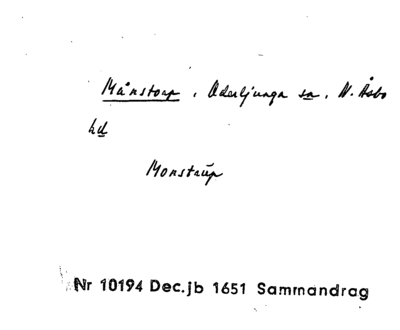 Månstorp, Oderljunga sn, N. Åsbo
hd
Monstrup
Nr 10194 Dec.jb 1651 Sammandrag